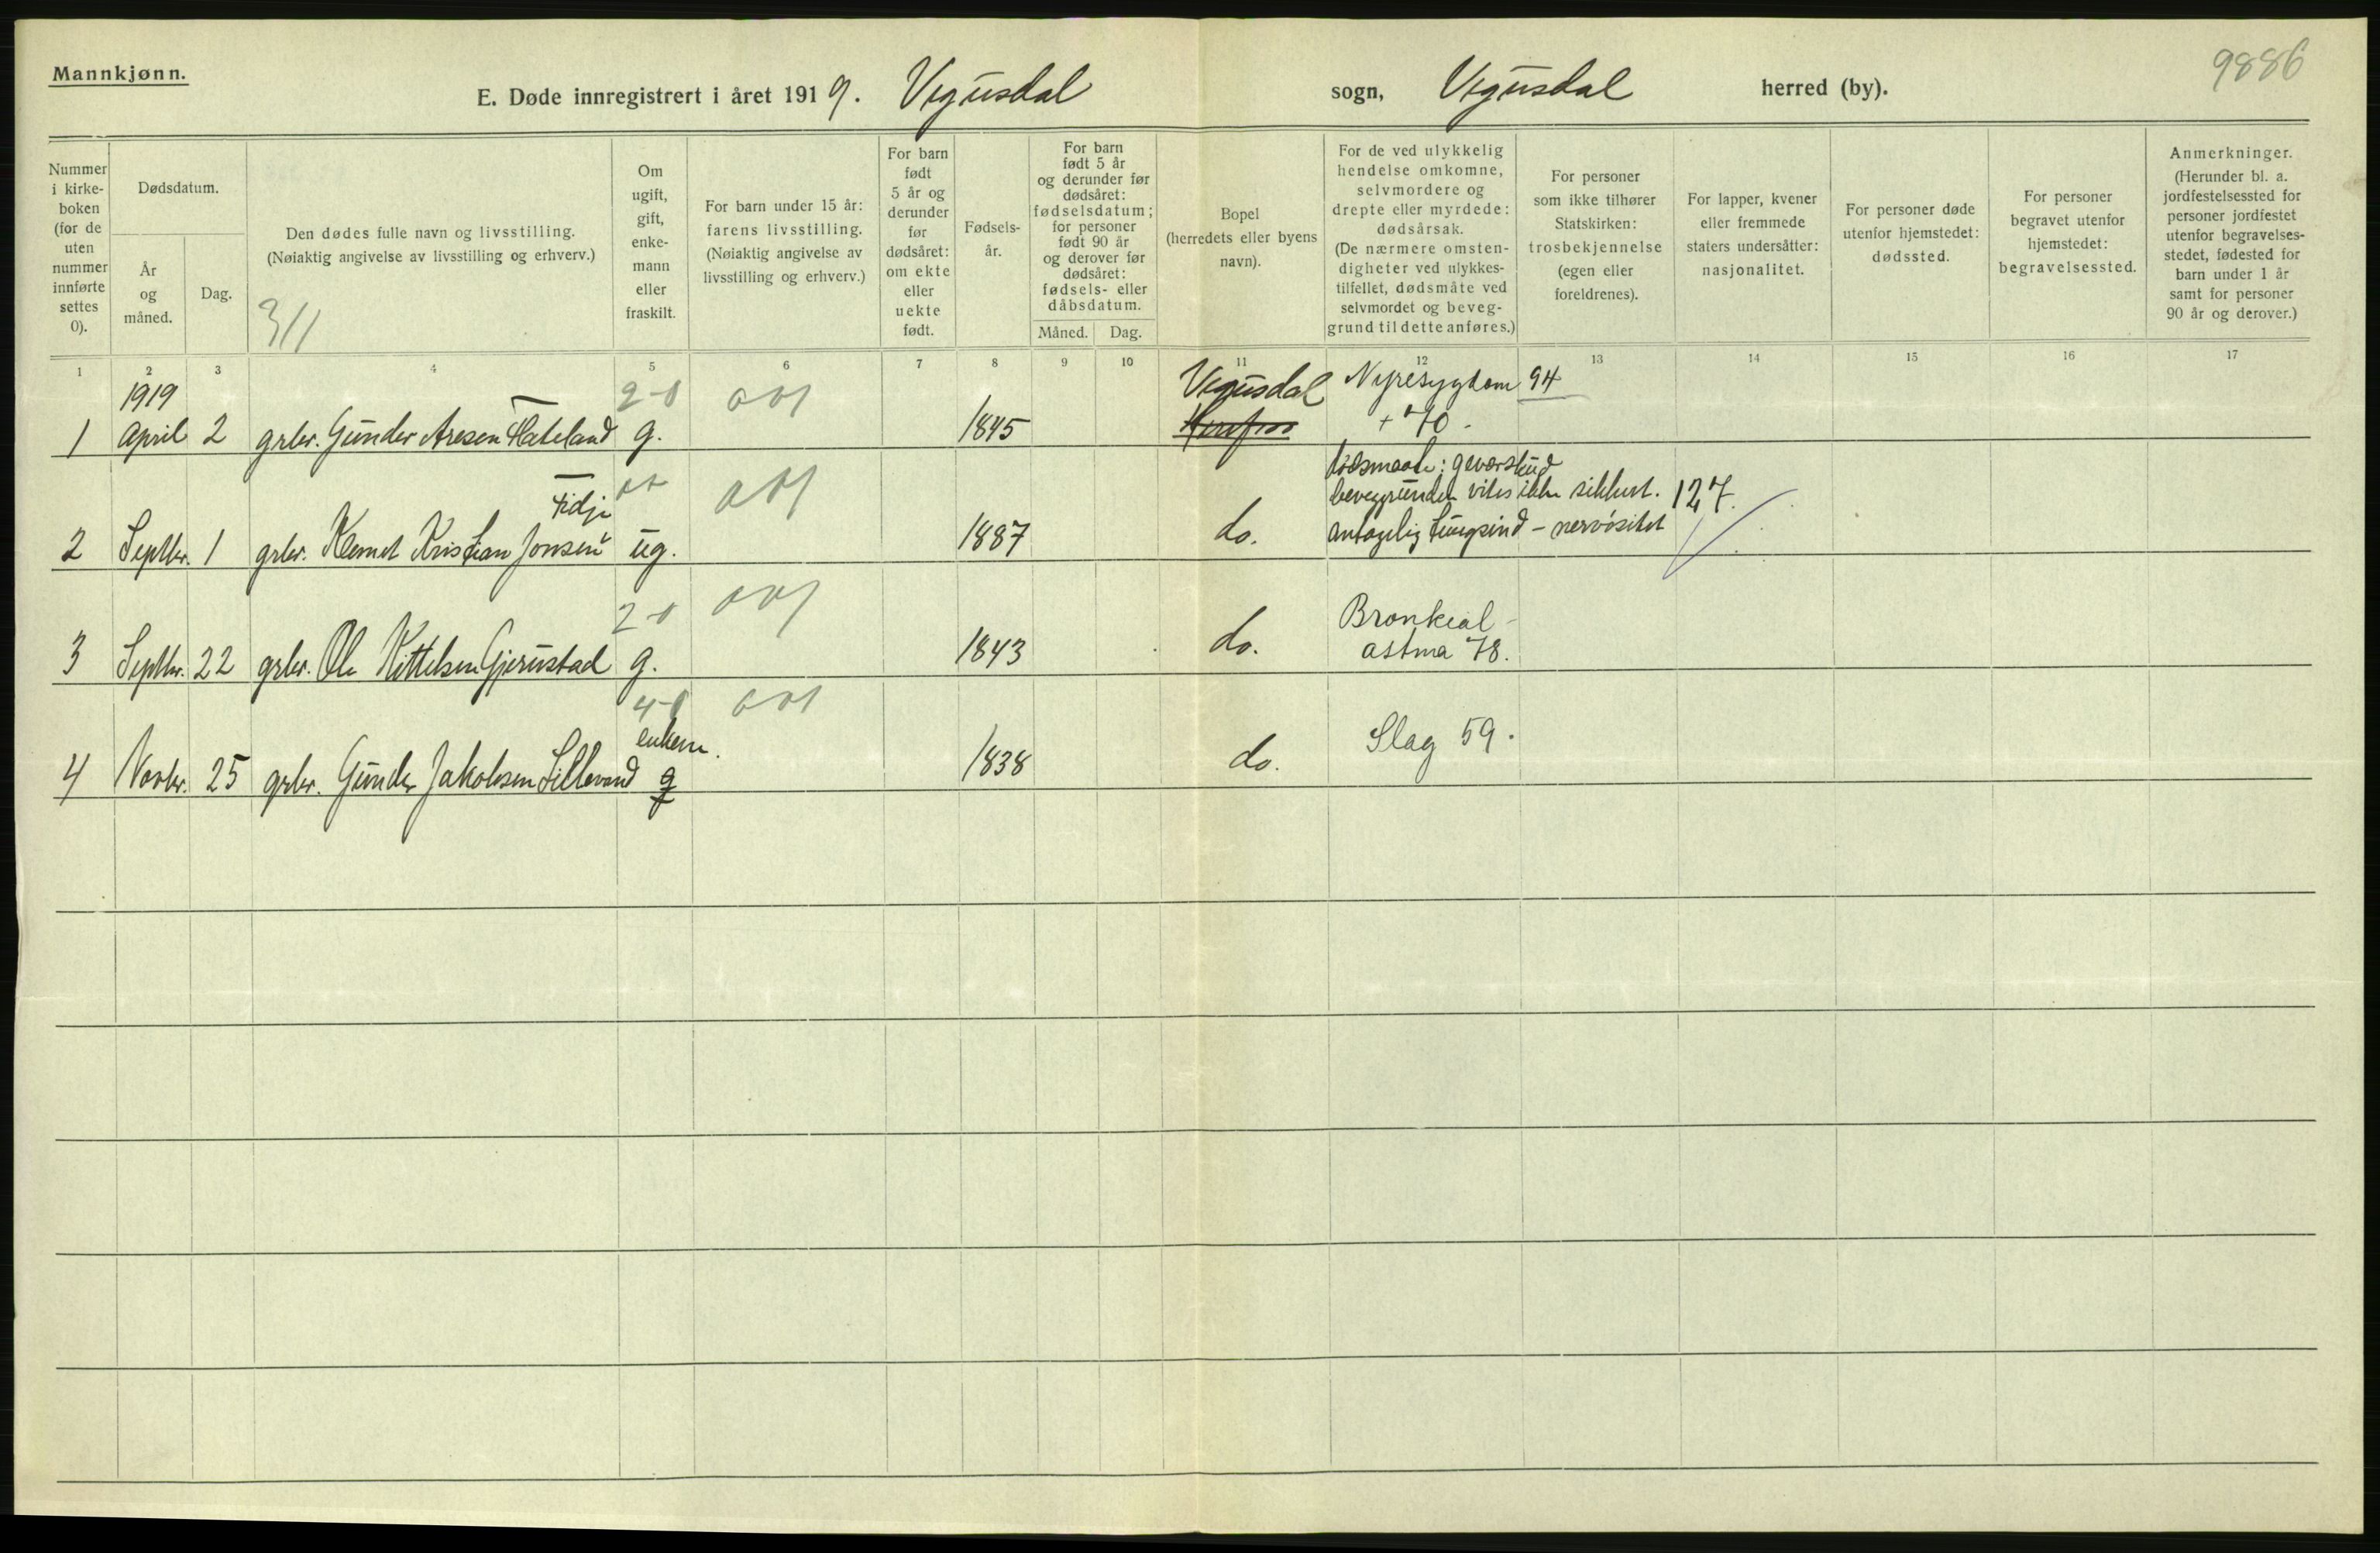 Mannkjønn.
9886
E. Døde innregistrert i året 1919. Vegusdal sogn, Vegusdal herred (by).
Nummer i kirke-boken (for de uten nummer innførte settes 0).
Dødsdatum.
År og måned.
Dag.
Den dødes fulle navn og livsstilling.
(Nøiaktig angivelse av livsstilling og erhverv.)
311
Om ugift, gift, enke-mann eller fraskilt.
For barn under 15 år: farens livsstilling.
(Nøiaktig angivelse av livsstilling og erhverv.)
For barn født 5 år og derunder før dødsåret: om ekte eller uekte født.
Fødsels-år.
For barn født 5 år og derunder før dødsåret: fødselsdatum; for personer født 90 år og derover før dødsåret: fødsels- eller dåbsdatum.
Måned. Dag.
Bopel (herredets eller byens navn).
For de ved ulykkelig hendelse omkomne, selvmordere og drepte eller myrdede: dødsårsak.
(De nærmere omsten-digheter ved ulykkes-tilfellet, dødsmåte ved selvmordet og beveg-grund til dette anføres.)
For personer som ikke tilhører Statskirken: trosbekjennelse (egen eller foreldrenes).
For lapper, kvener eller fremmede staters undersåtter: nasjonalitet.
For personer døde utenfor hjemstedet: dødssted.
For personer begravet utenfor hjemstedet: begravelsessted.
Anmerkninger.
(Herunder bl. a. jordfestelsessted for personer jordfestet utenfor begravelses-stedet, fødested for barn under 1 år samt for personer 90 år og derover.)
1 2 3 4 5 6 7 8 9 10 11 12 13 14 15 16 17
1919 2-0 001 Vegusdal Nyresygdom 94
1 April 2 grbr. Gunder Aresen Hateland g. 1845 + 70.
Fidje 001 dødsmaate: geværskud
bevæggrunden vites ikke sikkert. 127.
2 Septbr. 1 grbr. Klemet Kristian Jonsen ug. 1887 do. antagelig tungsind - nervøsitet
2-0 001 Bronkial-
3 Septbr. 22 grbr. Ole Kittelsen Gjerustad g. 1843 do. astma 78.
4-0 001
enkem. Slag 59.
4 Novbr. 25 grbr. Gunder Jakobsen Lillevand g 1838 do.